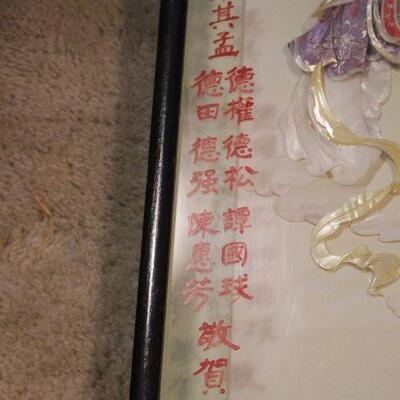 其孟
德權 德松 譚國球
德田 德强 陳惠芳
敬賀